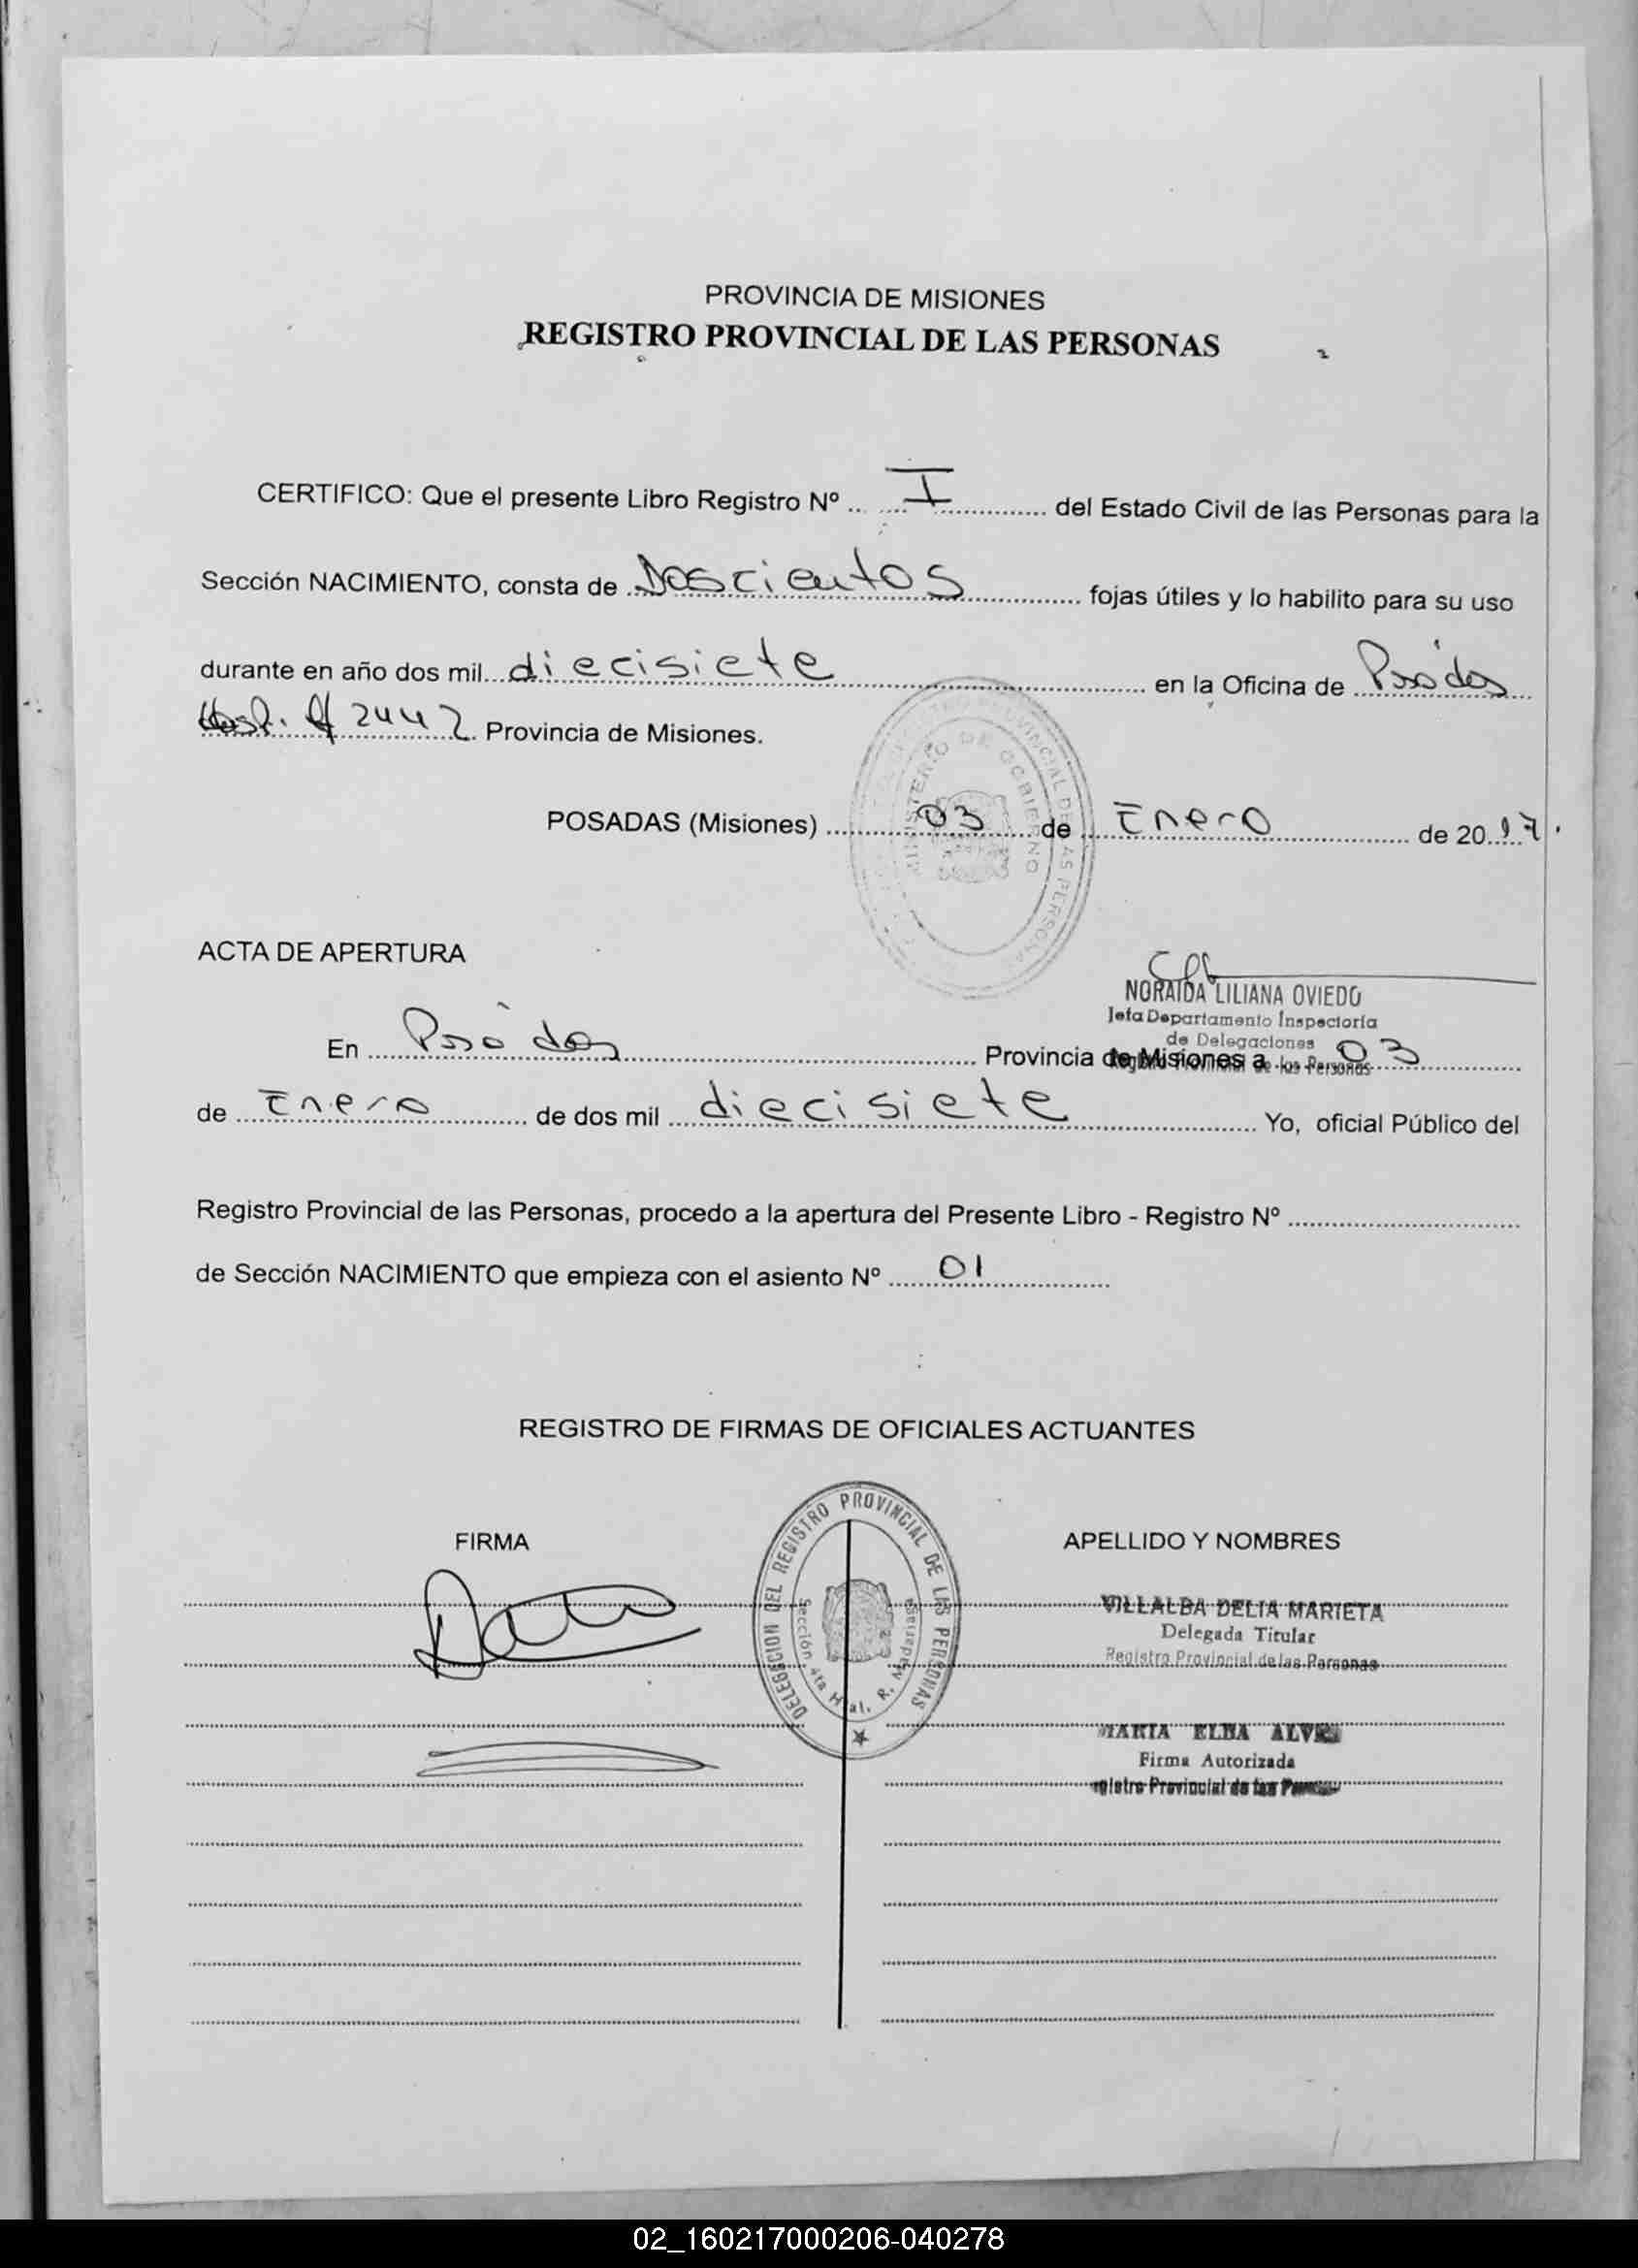 PROVINCIA DE MISIONES
REGISTRO PROVINCIAL DE LAS PERSONAS
CERTIFICO: Que el presente Libro Registro Nº ... I ... del Estado Civil de las Personas para la
Sección NACIMIENTO, consta de Doscientos fojas útiles y lo habilito para su uso
durante en año dos mil diecisiete en la Oficina de Posadas
Hosp. 2442 Provincia de Misiones.
POSADAS (Misiones) 03 de Enero de 2017.
REGISTRO PROVINCIAL DE LAS PERSONAS
MINISTERIO DE GOBIERNO
ACTA DE APERTURA
NORAIDA LILIANA OVIEDO
Jefa Departamento Inspectoría
de Delegaciones
Registro Provincial de las Personas
En Posadas Provincia de Misiones a 03
de Enero de dos mil diecisiete Yo, oficial Público del
Registro Provincial de las Personas, procedo a la apertura del Presente Libro - Registro Nº
de Sección NACIMIENTO que empieza con el asiento Nº 01
REGISTRO DE FIRMAS DE OFICIALES ACTUANTES
FIRMA
APELLIDO Y NOMBRES
DELEGACION DEL REGISTRO PROVINCIAL DE LAS PERSONAS
Sección 4ta
VILLALBA DELIA MARIETA
Delegada Titular
Registro Provincial de las Personas
MARIA ELBA
Firma Autorizada
Provincial de las
02_160217000206-040278